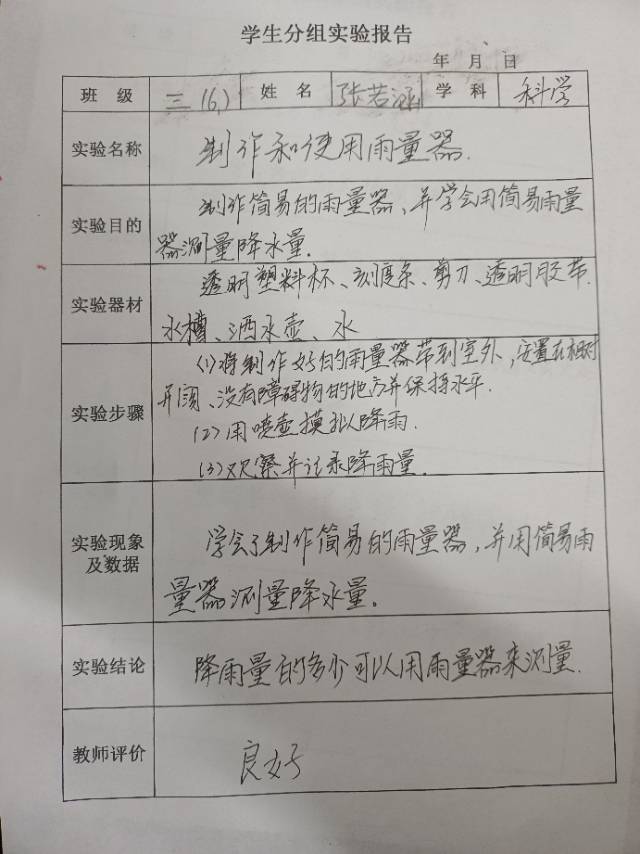 学生分组实验报告
年 月 日
班级 三(6) 姓名 张若涵 学科 科学
实验名称 制作和使用雨量器.
实验目的 制作简易的雨量器、并学会用简易雨量
器测量降水量.
实验器材 透明塑料杯、刻度条、剪刀、透明胶带.
水槽、洒水壶、水
实验步骤 (1)将制作好的雨量器带到室外,安置在相对
开阔、没有障碍物的地方并保持水平.
(2)用喷壶摸拟降雨.
(3)观察并记录降雨量.
实验现象及数据 学会了制作简易的雨量器,并用简易雨
量器测量降水量.
实验结论 降雨量的多少可以用雨量器来测量.
教师评价 良好